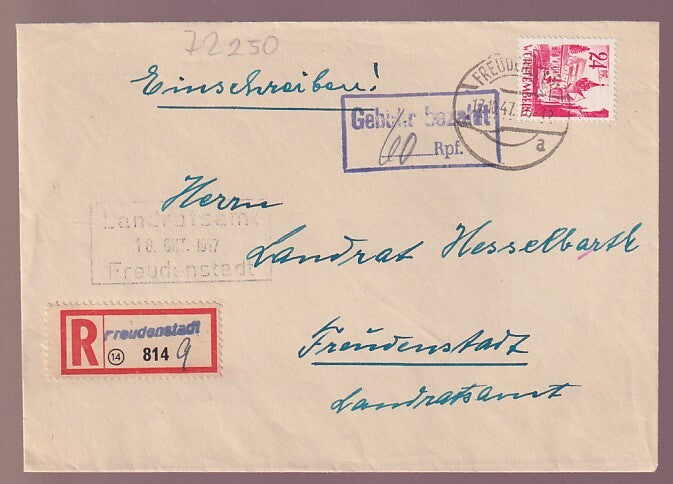 72250
24 PF.
WÜRTTEMBERG
Einschreiben!
Gebühr bezahlt
60 Rpf.
a
Herrn
Landrat Hesselbarth
Landratsamt
18. OKT. 1947
Freudenstadt
R Freudenstadt
14 814 9
Freudenstadt
Landratsamt